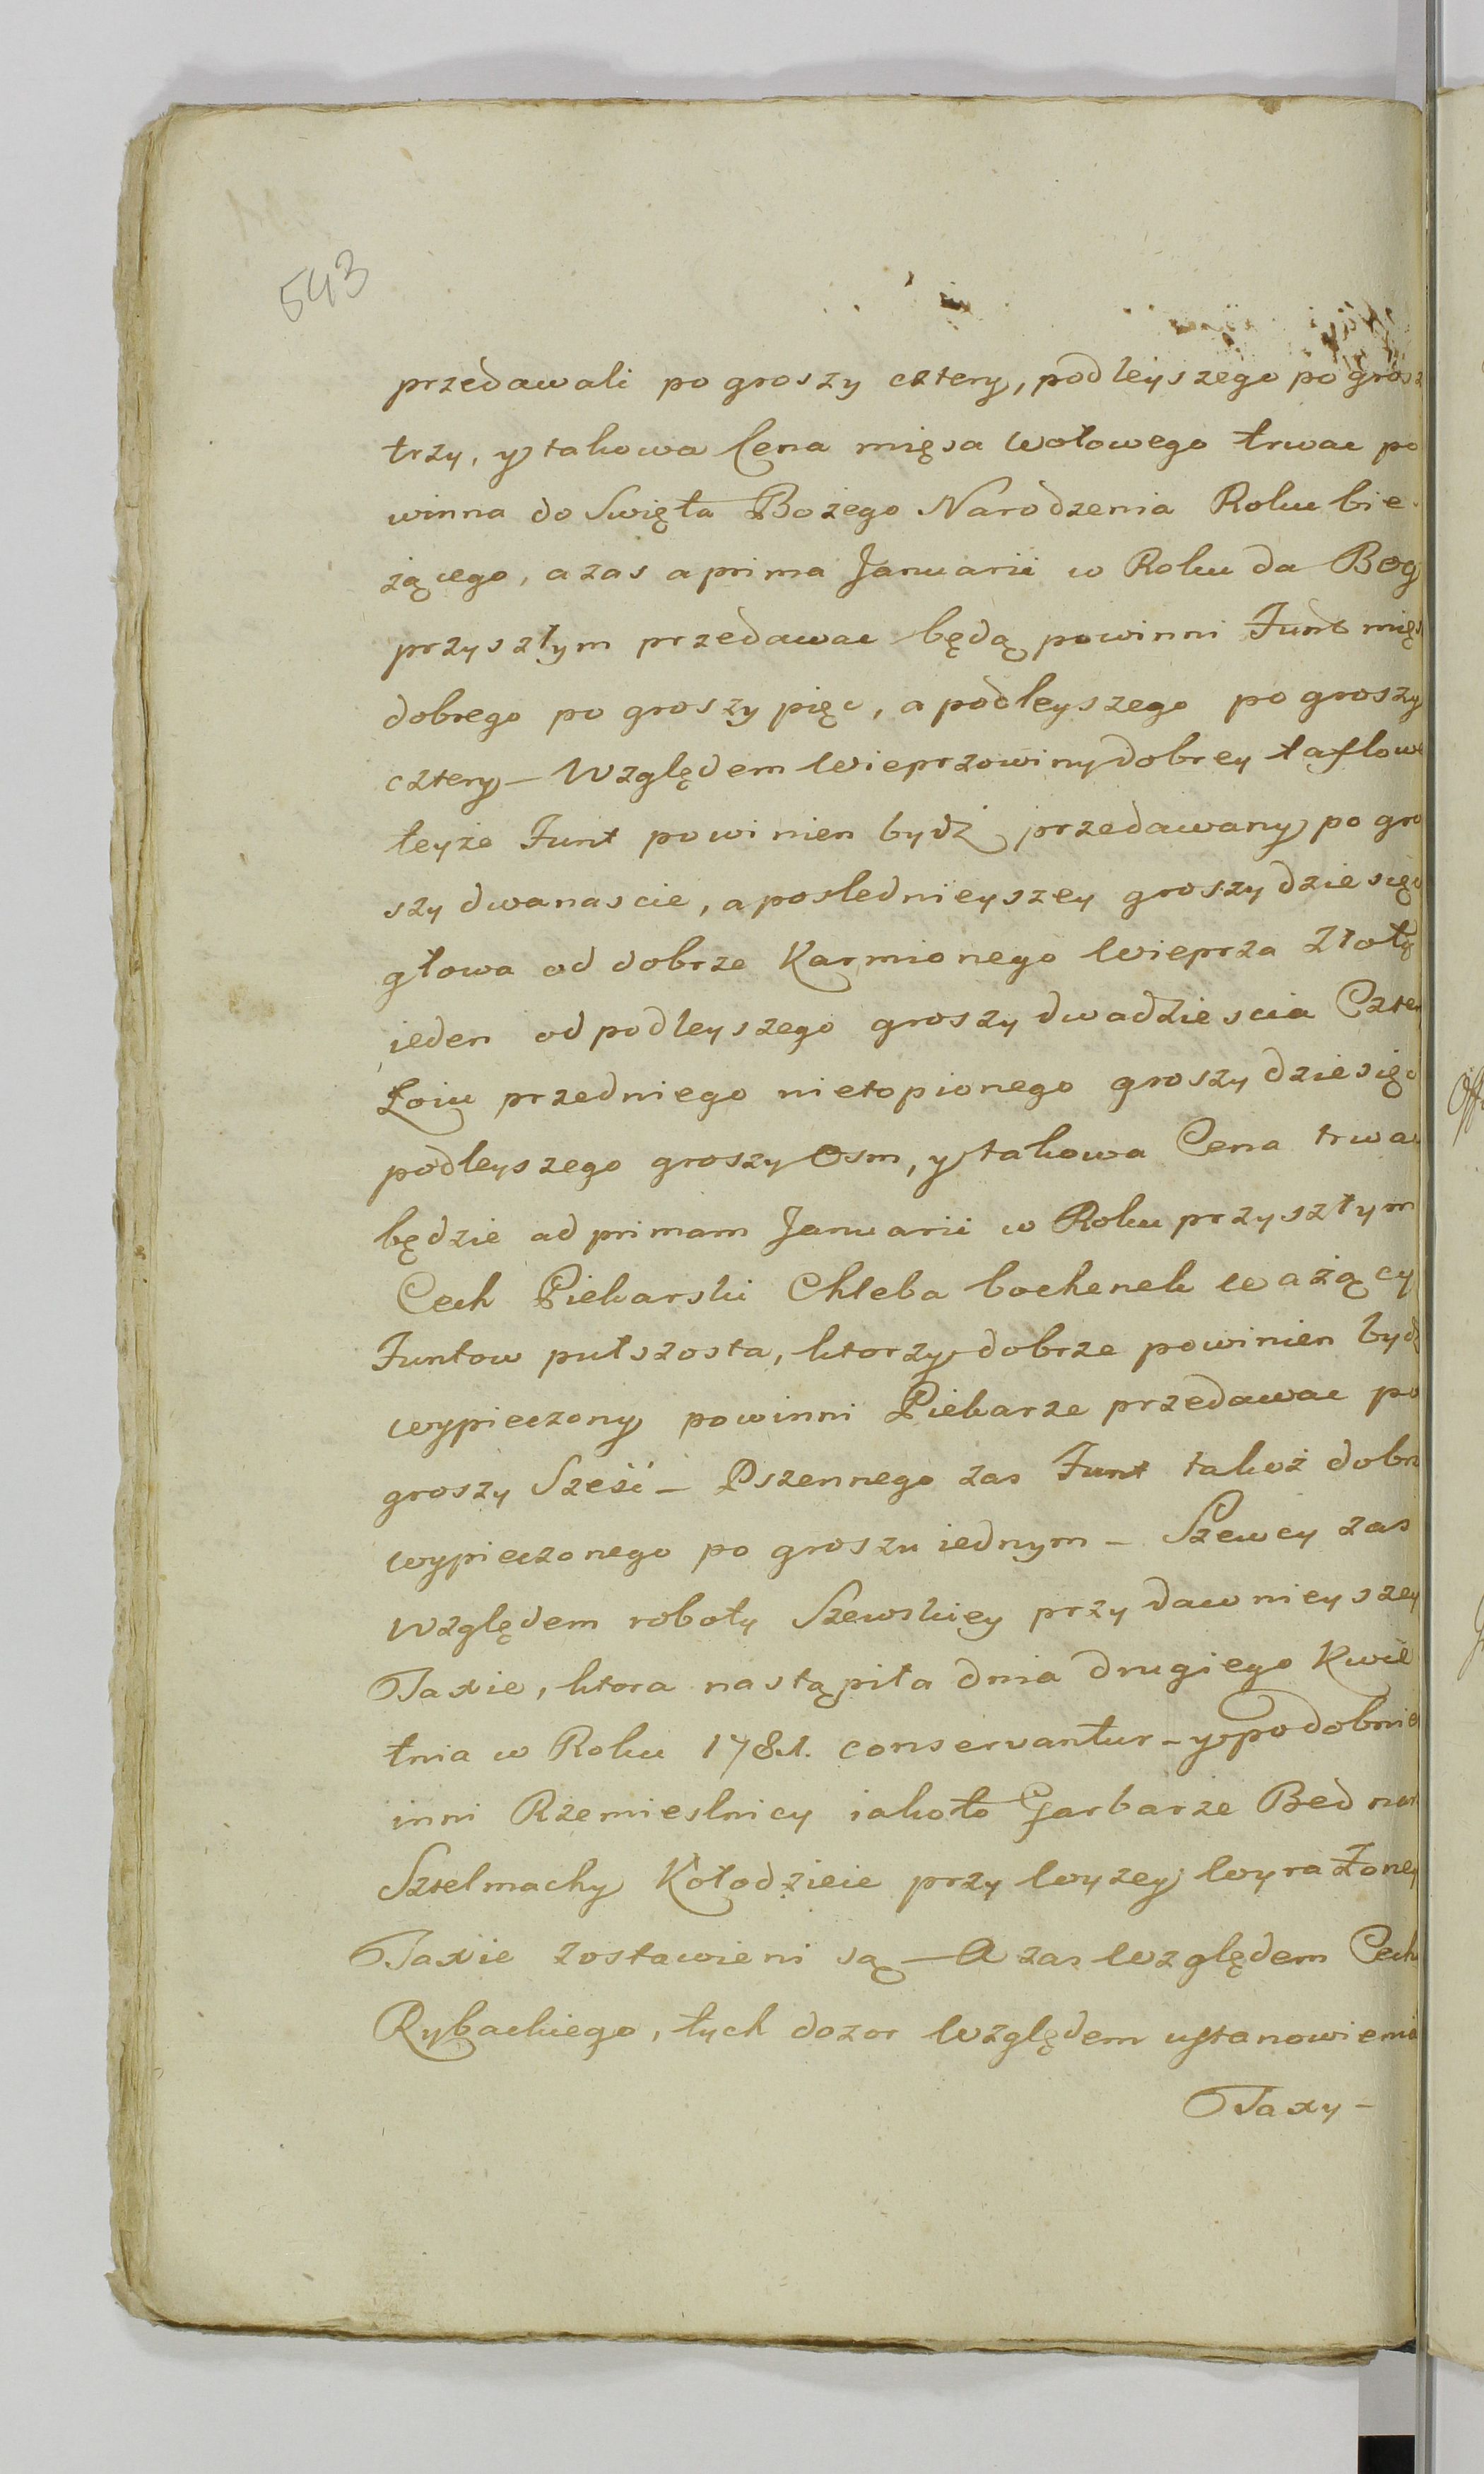 543
przedawali po groszy cztery, podleyszego po grosz
trzy, y takowa Cena mięsa Wołowego trwac po
winna do Swięta Bożego Narodzenia Roku bie-
żącego, a zas a prima Januarii w Roku da Bog
przyszłym przedawac będą powinni Funt mięs
dobrego po groszy pięc, a podleyszego po groszy
cztery – Względem Wieprzowiny dobrey tafłowe
teyże Funt powinien bydź przedawany po gro
szy dwanascie, a posłednieyszey groszy dziesięc
głowa od dobrze Karmionego Wieprza Złoty
ieden od podleyszego groszy dwadziescia Czter
Łoiu przedniego nietopionego groszy dziesięc
podleyszego groszy Osm, y takowa Cena trwac
będzie ad primam Januarii w Roku przyszłym
Cech Piekarski Chleba bochenek ważący
Funtow pułszosta, ktorzy dobrze powinien bydź
wypieczony powinni Piekarze przedawac po
groszy Sześć – Pszennego zas Funt takoż dobrz
wypieczonego po groszu iednym – Szewcy zas
Względem roboty Szewskiey przy dawnieyszey
Taxie, ktora nastąpiła dnia drugiego Kwie
tnia w Roku 1781. conservantur – y podobnie
inni Rzemieslnicy iakoto Garbarze Bednar
Sztelmachy Kołodzieie przy Wyzey Wyrażoney
Taxie zostawieni są – A zas Względem Cech
Rybackiego, tych dozor Względem ustanowienia
Taxy –